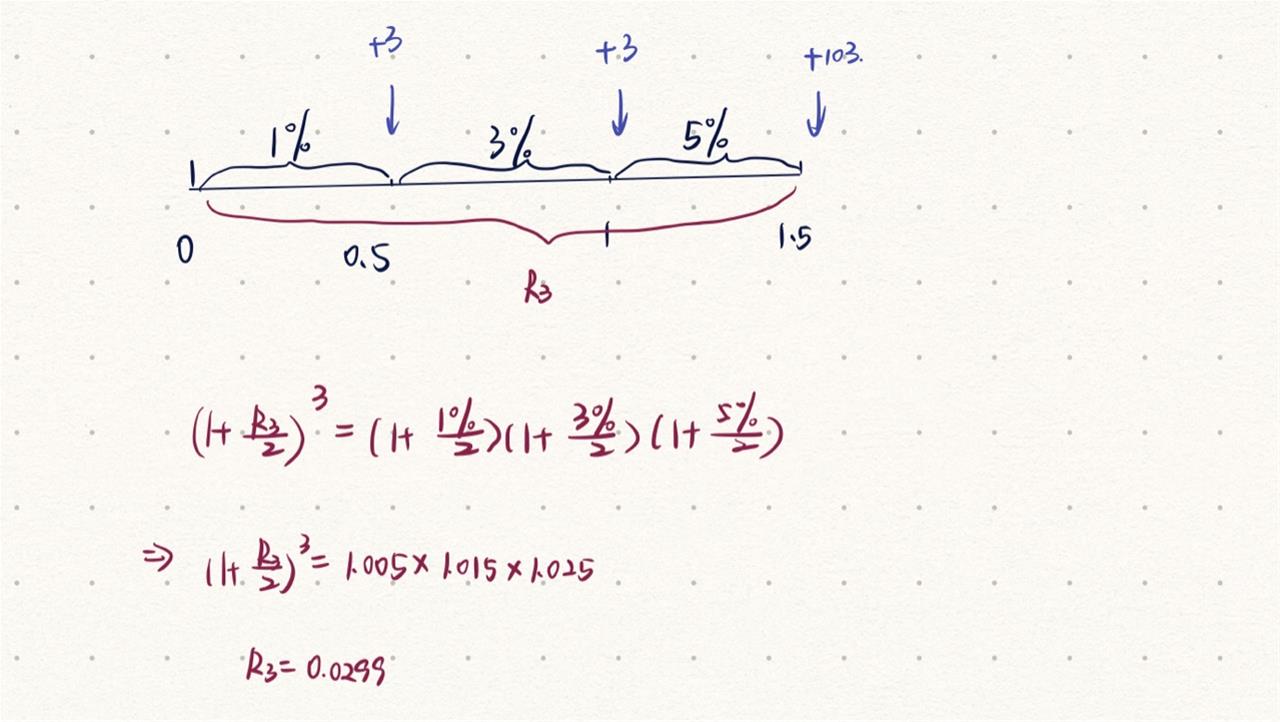 +3 +3 +103.
1% 3% 5%
0 0.5 1 1.5
R3
(1+ R3/2)^3 = (1+ 1%/2)(1+ 3%/2)(1+ 5%/2)
⇒ (1+ R3/2)^3 = 1.005 × 1.015 × 1.025
R3 = 0.0299